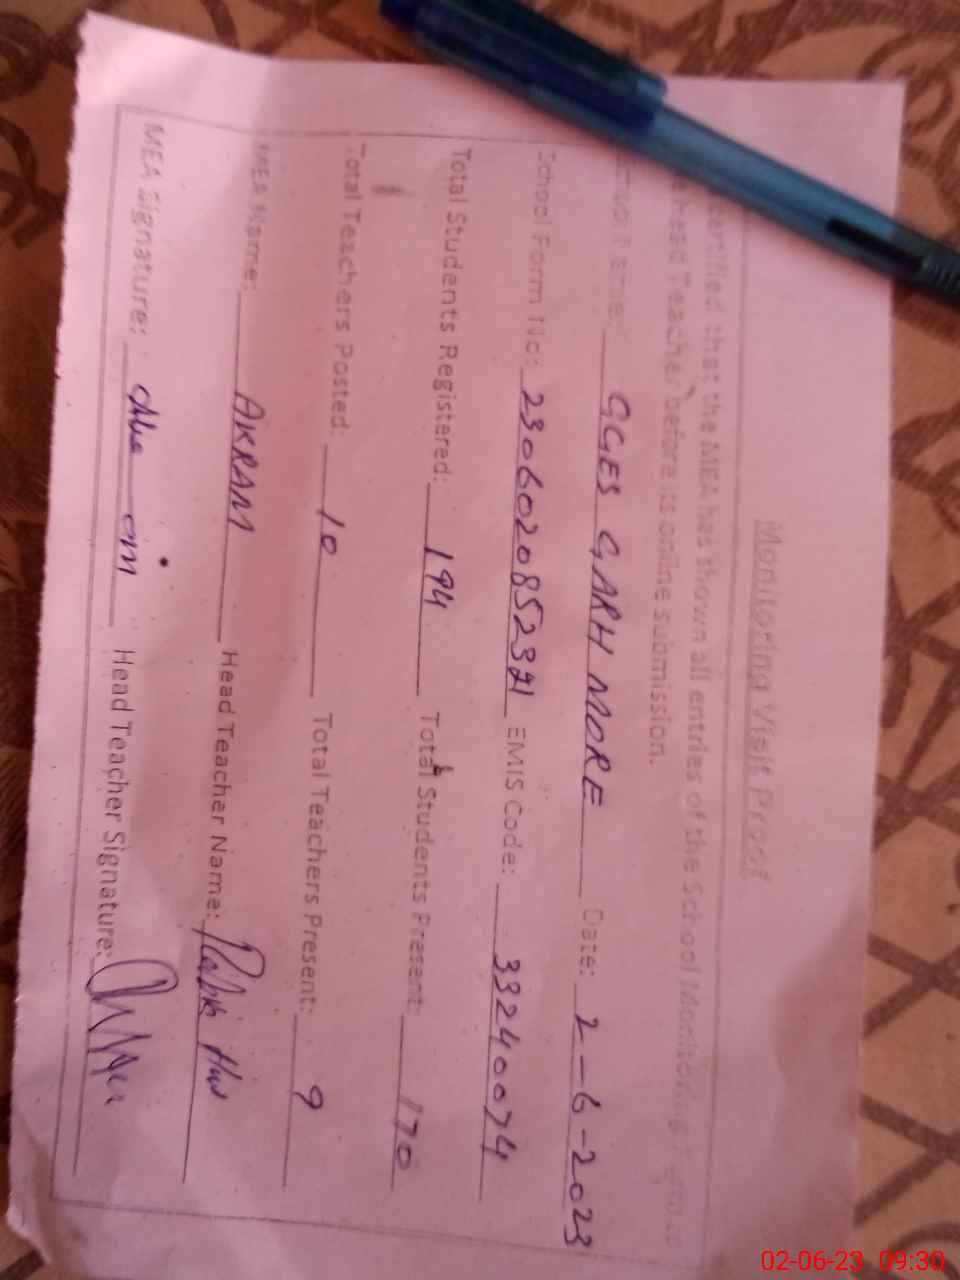 Monitoring Visit Proof
certified that the MEA has shown all entries of the School Monitoring
Head Teacher before its online submission.
School Name: GGES GARH MORE Date: 2-6-2023
School Form No: 230602085232 EMIS Code: 33240074
Total Students Registered: 194 Total Students Present: 170
Total Teachers Posted: 10 Total Teachers Present: 9
MEA Name: AKRAM Head Teacher Name:
MEA Signature: Head Teacher Signature:
02-06-23 09:30